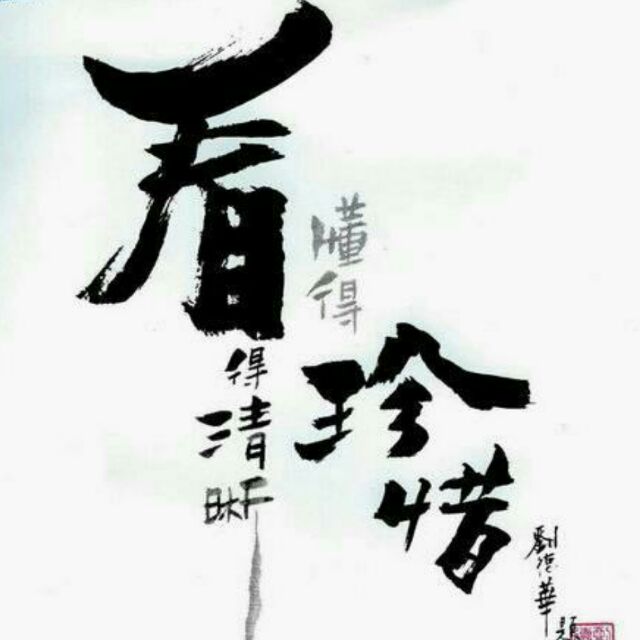 看得清晰
懂得珍惜
劉德華題